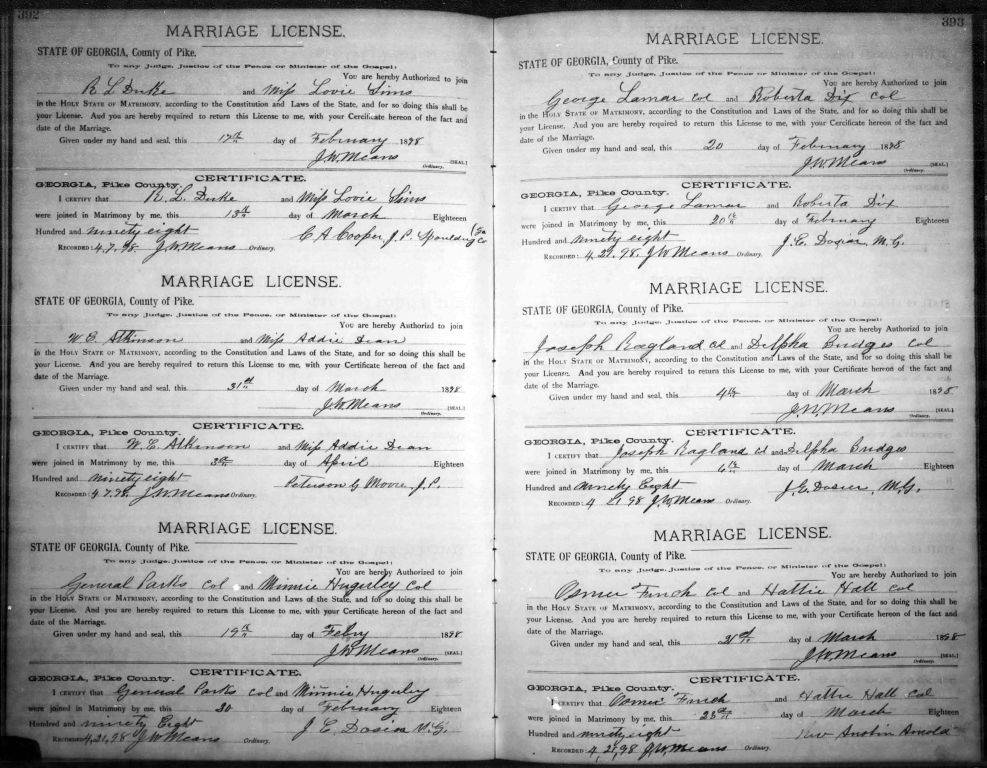 392
MARRIAGE LICENSE.
STATE OF GEORGIA, County of Pike.
To any Judge, Justice of the Peace or Minister of the Gospel:
You are hereby Authorized to join
R L Duke and Miss Lovie Sims
in the HOLY STATE OF MATRIMONY, according to the Constitution and Laws of the State, and for so doing this shall be
your License. And you are hereby required to return this License to me, with your Certificate hereon of the fact and
date of the Marriage.
Given under my hand and seal, this 17th day of February 1898
J.W. Means [SEAL.]
Ordinary.
CERTIFICATE.
GEORGIA, Pike County.
I CERTIFY that R. L. Duke and Miss Lovie Sims
were joined in Matrimony by me, this 13th day of March Eighteen
Hundred and ninety eight C A Cooper, J. P. Spoulding Co Ga
RECORDED 4.7.98. J W Means Ordinary.
MARRIAGE LICENSE.
STATE OF GEORGIA, County of Pike.
To any Judge, Justice of the Peace, or Minister of the Gospel:
You are hereby Authorized to join
W. E. Atkinson and Miss Addie Dean
in the HOLY STATE OF MATRIMONY, according to the Constitution and Laws of the State, and for so doing this shall be
your License. And you are hereby required to return this License to me, with your Certificate hereon of the fact and
date of the Marriage.
Given under my hand and seal, this 31st day of March 1898
J.W. Means [SEAL.]
Ordinary.
CERTIFICATE.
GEORGIA, Pike County.
I CERTIFY that W. E. Atkinson and Miss Addie Dean
were joined in Matrimony by me, this 3rd day of April Eighteen
Hundred and ninety eight Peterson G Moore, J. P.
RECORDED: 4.7.98. J W Means Ordinary.
MARRIAGE LICENSE.
STATE OF GEORGIA, County of Pike.
To any Judge, Justice of the Peace, or Minister of the Gospel:
You are hereby Authorized to join
General Parks Col and Minnie Hugerley Col
in the HOLY STATE OF MATRIMONY, according to the Constitution and Laws of the State, and for so doing this shall be
your License. And you are hereby required to return this License to me, with your Certificate hereon of the fact and
date of the Marriage.
Given under my hand and seal, this 19th day of Febry 1898
J.W. Means [SEAL.]
Ordinary.
CERTIFICATE.
GEORGIA, Pike County.
I CERTIFY that General Parks Col and Minnie Hugerley
were joined in Matrimony by me, this 20 day of February Eighteen
Hundred and ninety Eight J. E. Dosier M.G.
RECORDED: 4,21,98 J W Means Ordinary.
393
MARRIAGE LICENSE.
STATE OF GEORGIA, County of Pike.
To any Judge, Justice of the Peace or Minister of the Gospel:
You are hereby Authorized to join
George Lamar Col and Roberta Dix Col
in the HOLY STATE OF MATRIMONY, according to the Constitution and Laws of the State, and for so doing this shall be
your License. And you are hereby required to return this License to me, with your Certificate hereon of the fact and
date of the Marriage.
Given under my hand and seal, this 20 day of February 1898
J.W. Means [SEAL.]
Ordinary.
CERTIFICATE.
GEORGIA, Pike County.
I CERTIFY that George Lamar and Roberta Dix
were joined in Matrimony by me, this 20th day of February Eighteen
Hundred and ninety eight J. E. Dosier, M. G.
RECORDED: 4,21.98. J W Means Ordinary.
MARRIAGE LICENSE.
STATE OF GEORGIA, County of Pike.
To any Judge, Justice of the Peace, or Minister of the Gospel:
You are hereby Authorized to join
Joseph Ragland Col and Delpha Bridges Col
in the HOLY STATE OF MATRIMONY, according to the Constitution and Laws of the State, and for so doing this shall be
your License. And you are hereby required to return this License to me, with your Certificate hereon of the fact and
date of the Marriage.
Given under my hand and seal, this 4th day of March 1898
J.W. Means [SEAL.]
Ordinary.
CERTIFICATE.
GEORGIA, Pike County.
I CERTIFY that Joseph Ragland Col and Delpha Bridges
were joined in Matrimony by me, this 6th day of March Eighteen
Hundred and ninety Eight J. E. Dosier, M. G.
RECORDED: 4 21 98 J. W. Means Ordinary.
MARRIAGE LICENSE.
STATE OF GEORGIA, County of Pike.
To any Judge, Justice of the Peace, or Minister of the Gospel:
You are hereby Authorized to join
Osmer Finch Col and Hattie Hall Col
in the HOLY STATE OF MATRIMONY, according to the Constitution and Laws of the State, and for so doing this shall be
your License. And you are hereby required to return this License to me, with your Certificate hereon of the fact and
date of the Marriage.
Given under my hand and seal, this 21st day of March 1898
J.W. Means [SEAL.]
Ordinary.
CERTIFICATE.
GEORGIA, Pike County.
I CERTIFY that Osmer Finch and Hattie Hall Col
were joined in Matrimony by me, this day of March Eighteen
Hundred and ninety eight Rev Austin Arnold
RECORDED: 4,21,98 J.W. Means Ordinary.